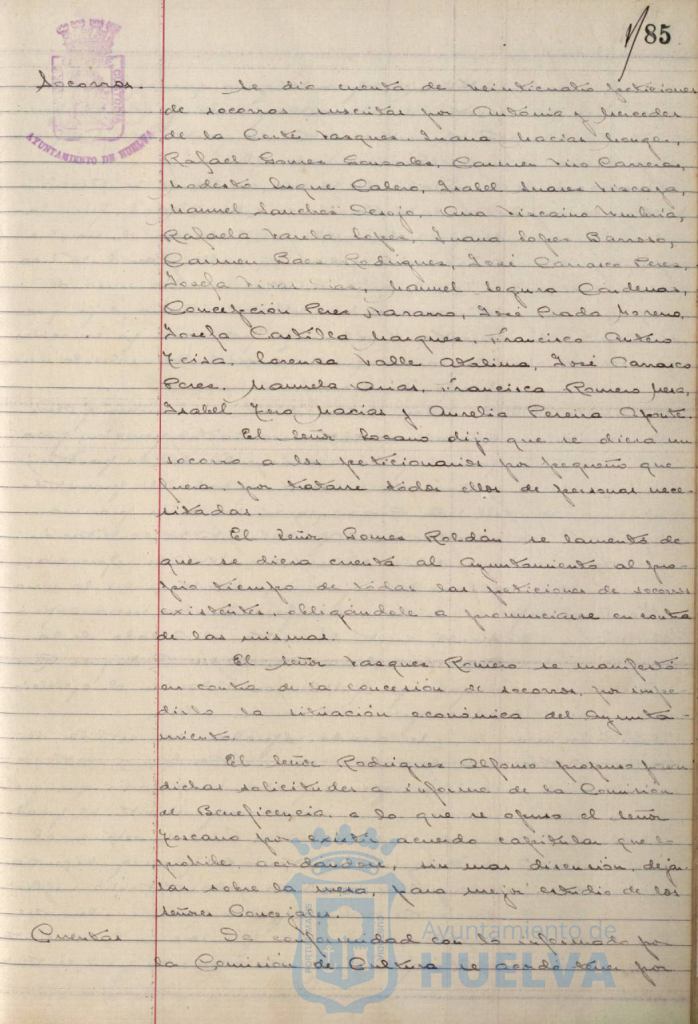 85
AYUNTAMIENTO DE HUELVA
Socorros.
Se dio cuenta de veinticuatro peticiones
de socorros suscritas por Antónia y Mercedes
de la Corte Vasques, Juana Macias Monge,
Rafael Gomes Gonsales, Carmen Viso Carreras,
Modesto Luque Calero, Isabel Suares Viscaya,
Manuel Sanches Orojo, Ana Viscaino Umbria,
Rafaela Varela Lopes, Juana Lopes Barroso,
Carmen Baes Rodrigues, José Carrasco Peres,
Josefa Vivas Dias, Manuel Segura Cárdenas,
Concepción Peres Navarro, José Prada Moreno,
Josefa Castilla Marques, Francisco Antero
Lorensa Valle José Carrasco
Peres, Manuela Arias, Francisca Romero Mesa,
Isabel Macias y Aurelia Pereira Aponte.
El Señor Toscano dijo que se diera un
socorro a los peticionarios por pequeño que
fuera, por tratarse todos ellos de personas nece-
sitadas.
El Señor Gomes Roldán se lamentó de
que se diera cuenta al Ayuntamiento al pro-
pio tiempo de todas las peticiones de socorros
existentes, obligándole a pronunciarse en contra
de las mismas.
El Señor Vasques Romero se manifestó
en contra de la concesión de socorros, por impe-
dirlo la situación económica del Ayunta-
miento.
El Señor Rodrigues Alfonso propuso
dichas solicitudes a informe de la Comisión
de Beneficencia, a lo que se opuso el Señor
Toscano por existir acuerdo capitular que lo
prohibe, acordándose, sin mas discusión, dejar-
las sobre la mesa, para mejor estudio de los
Señores Concejales.
Cuentas
De conformidad con lo informado por
la Comisión de Cultura se acordó por
Ayuntamiento de
HUELVA